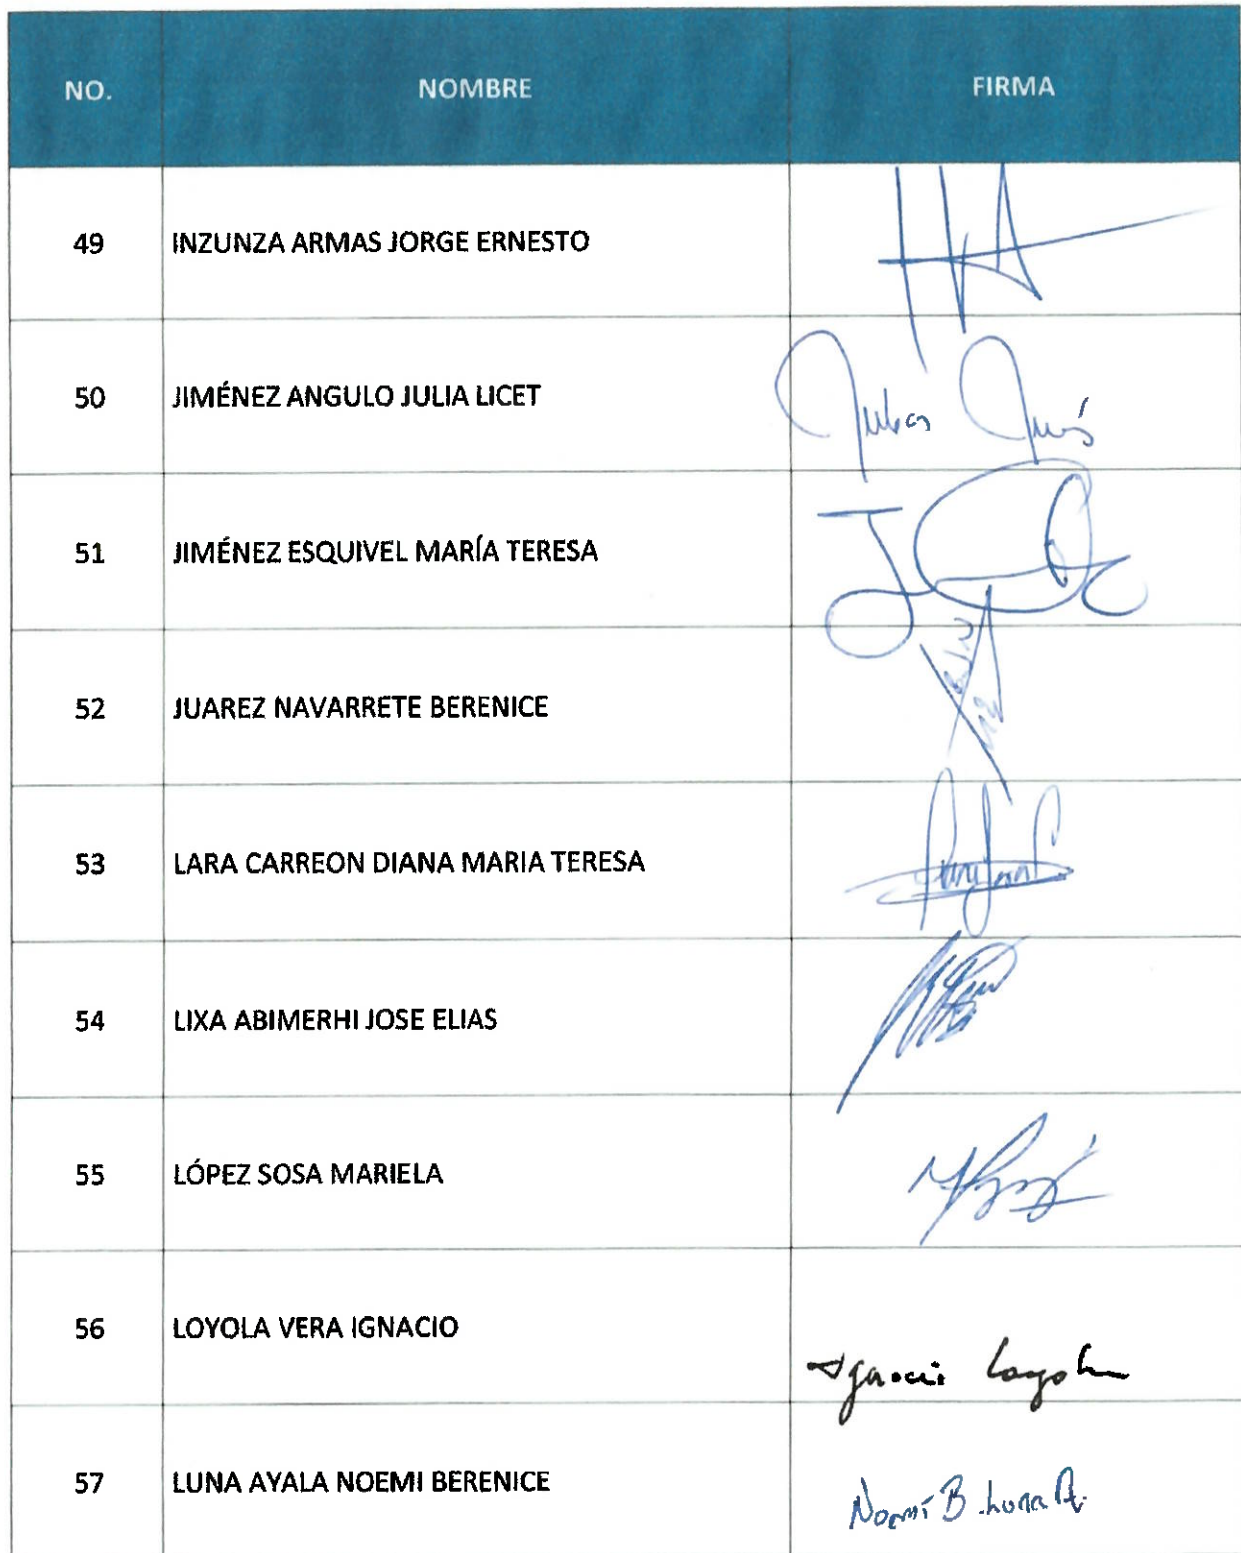 NO. NOMBRE FIRMA
49 INZUNZA ARMAS JORGE ERNESTO
50 JIMÉNEZ ANGULO JULIA LICET
51 JIMÉNEZ ESQUIVEL MARÍA TERESA
52 JUAREZ NAVARRETE BERENICE
53 LARA CARREON DIANA MARIA TERESA
54 LIXA ABIMERHI JOSE ELIAS
55 LÓPEZ SOSA MARIELA
56 LOYOLA VERA IGNACIO Ignacio Loyola
57 LUNA AYALA NOEMI BERENICE Noemí B. Luna A.